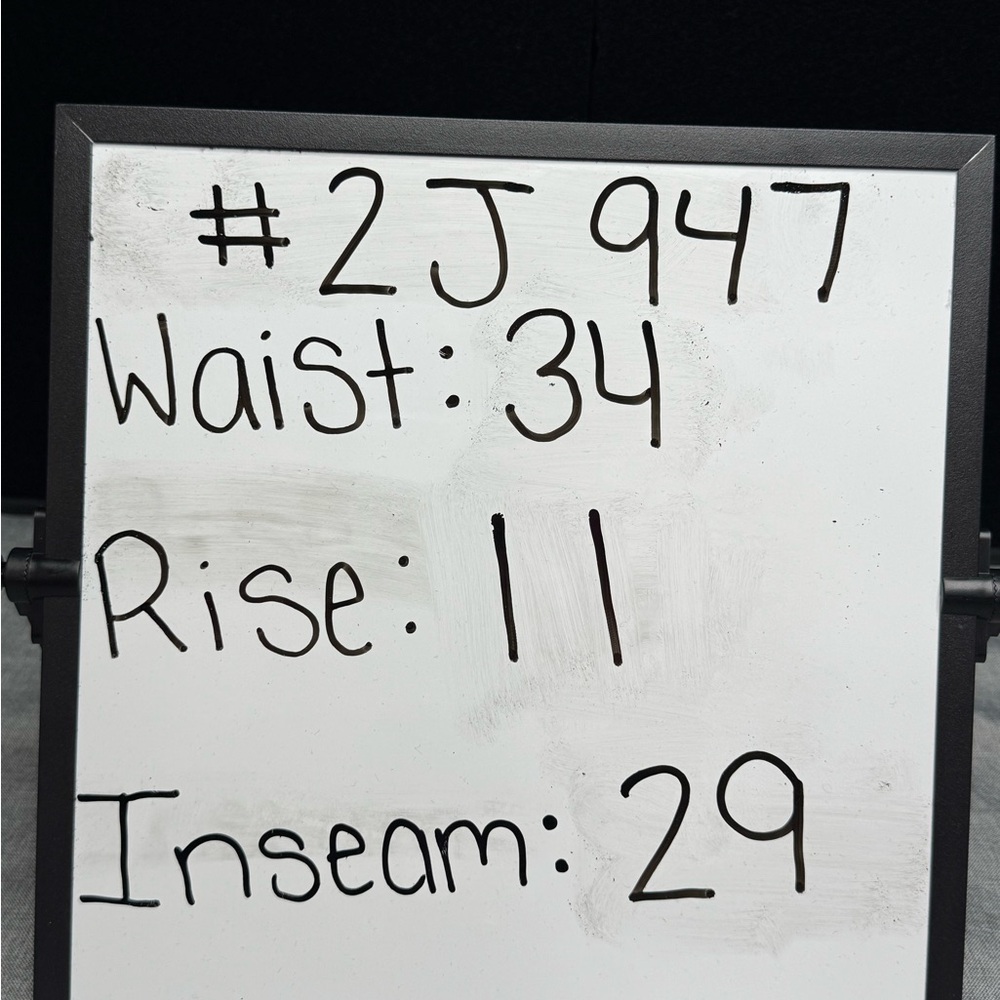 #2J947
Waist: 34
Rise: 11
Inseam: 29